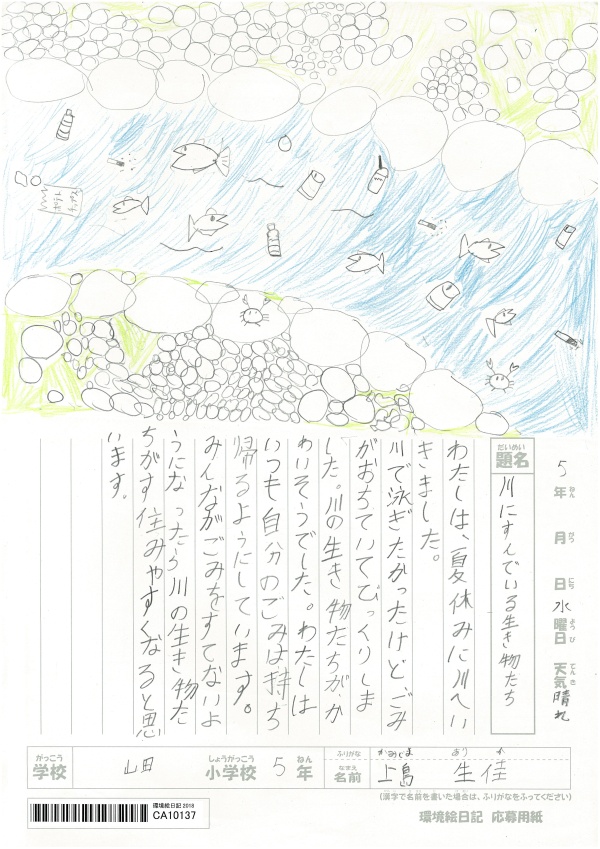 ポテト
チップス
5年 月 日 水曜日 天気 晴れ
ねん がつ にち ようび てんき
だいめい
題名
川にすんでいる生き物たち
わたしは、夏休みに川へい
きました。
川で泳ぎたかったけど、ごみ
がおちていてびっくりしま
した。川の生き物たちが、か
わいそうでした。わたしは
いつも自分のごみは持ち
帰るようにしています。
みんながごみをすてないよ
うになったら川の生き物た
ちがす住みやすくなると思
います。
がっこう しょうがっこう ねん
学校 山田 小学校 5年
ふりがな かみじま あり か
なまえ
名前 上島 生佳
(漢字で名前を書いた場合は、ふりがなをふってください)
環境絵日記 応募用紙
環境絵日記 2018
CA10137